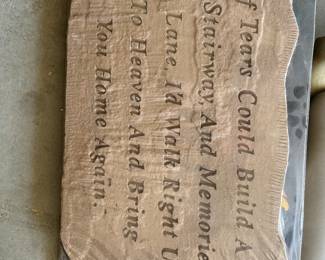 f Tears Could Build A
Stairway, And Memorie
Lane, I'd Walk Right U
To Heaven And Bring
You Home Again.